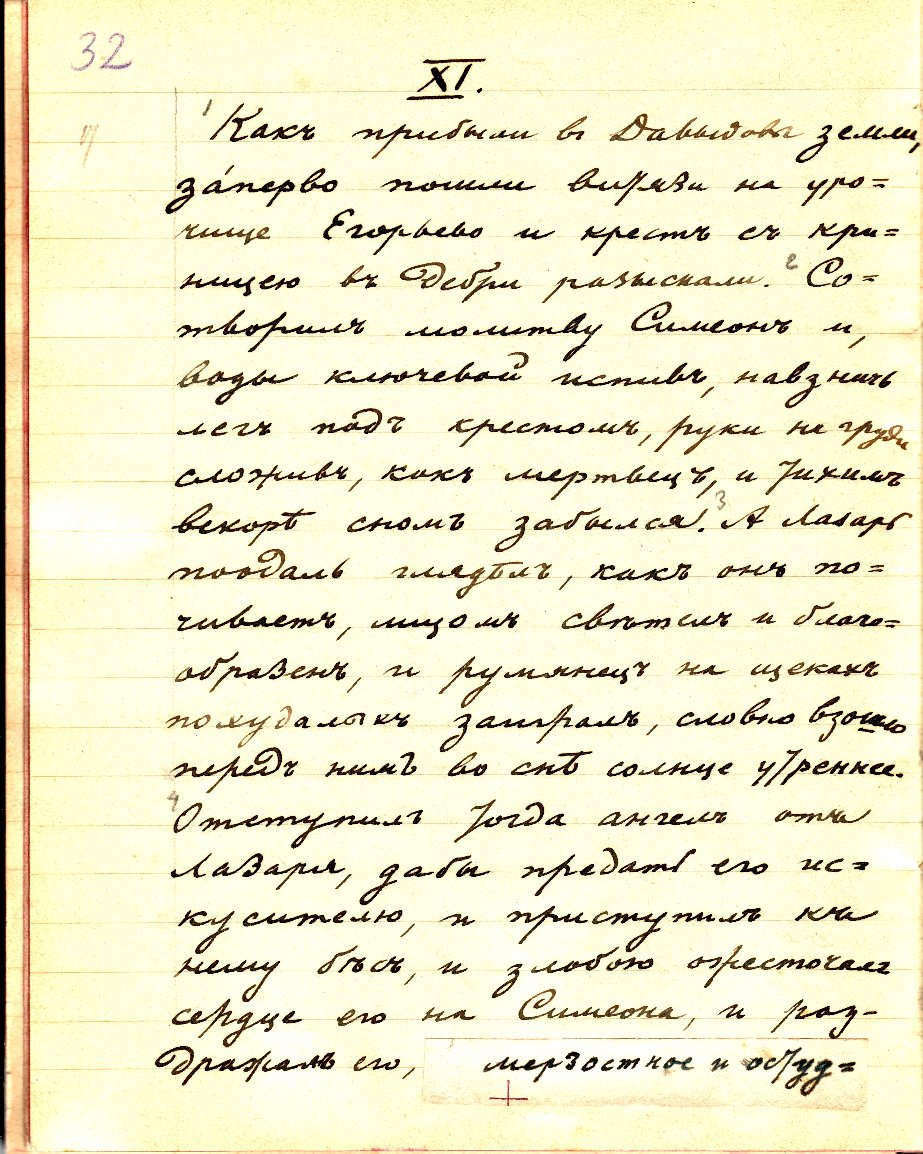 32
XI.
1 Какъ прибыли въ Давыдовы земли,
за́перво пошли витязи на уро=
чище Егорьево и крестъ съ кри=
ницею въ Дебри разыскали. 2 Со=
творилъ молитву Симеонъ и,
воды ключевой испивъ, навзничь
легъ подъ крестомъ, руки на груди
сложивъ, какъ мертвецъ, и тихимъ
вскорѣ сномъ забылся. 3 А Лазарь
поодаль глядѣлъ, какъ онъ по=
чиваетъ, лицомъ свѣтелъ и благо=
образенъ, и румянецъ на щекахъ
похудалыхъ заигралъ, словно взошло
передъ нимъ во снѣ солнце утреннее.
4 Отступилъ тогда ангелъ отъ
Лазаря, дабы предать его ис=
кусителю, и приступилъ къ
нему бѣсъ, и злобою ожесточалъ
сердце его на Симеона, и раз-
дражалъ его, мерзостное и остуд=